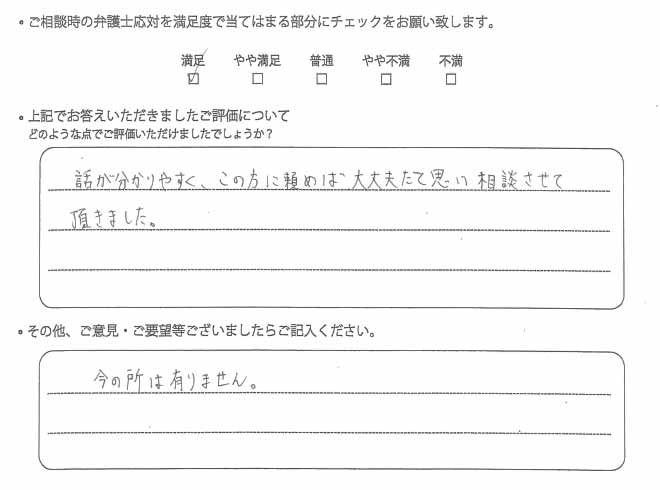 • ご相談時の弁護士応対を満足度で当てはまる部分にチェックをお願い致します。
満足 やや満足 普通 やや不満 不満
☑ □ □ □ □
• 上記でお答えいただきましたご評価について
どのような点でご評価いただけましたでしょうか？
話が分かりやすく、この方に頼めば大丈夫だて思い相談させて
頂きました。
• その他、ご意見・ご要望等ございましたらご記入ください。
今の所は有りません。